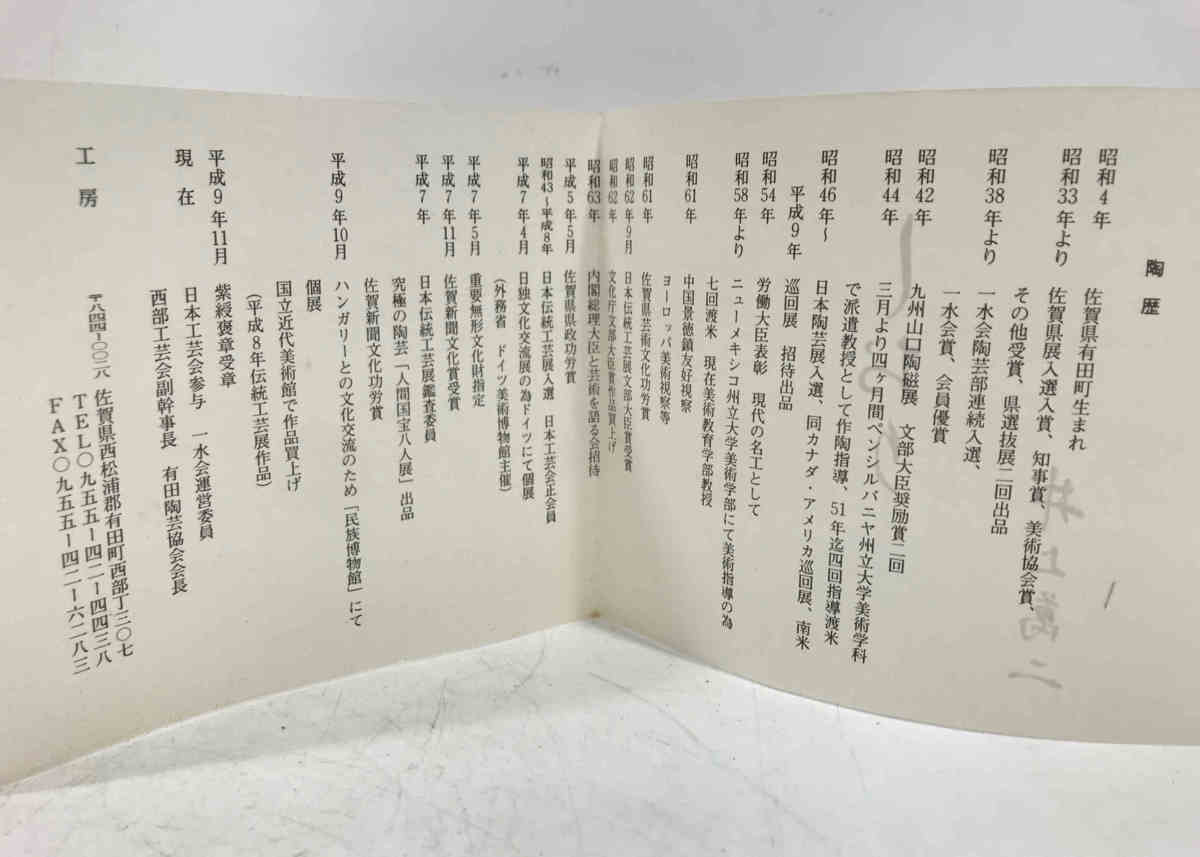 陶歴
昭和4年 佐賀県有田町生まれ
昭和33年より 佐賀県展入選入賞、知事賞、美術協会賞、
その他受賞、県選抜展二回出品
昭和38年より 一水会陶芸部連続入選、
一水会賞、会員優賞
昭和42年 九州山口陶磁展 文部大臣奨励賞二回
昭和44年 三月より四ヶ月間ペンシルバニヤ州立大学美術学科
で派遣教授として作陶指導、51年迄四回指導渡米
昭和46年～ 日本陶芸展入選、同カナダ・アメリカ巡回展、南米
平成9年 巡回展 招待出品
昭和54年 労働大臣表彰 現代の名工として
昭和58年より ニューメキシコ州立大学美術学部にて美術指導の為
七回渡米 現在美術教育学部教授
昭和61年 中国景徳鎮友好視察
ヨーロッパ美術視察等
昭和61年 佐賀県芸術文化功労賞
昭和62年9月 日本伝統工芸展文部大臣賞受賞
昭和62年 文化庁文部大臣賞作品買上げ
昭和63年 内閣総理大臣と芸術を語る会招待
平成5年5月 佐賀県県政功労賞
昭和43～平成8年 日本伝統工芸展入選 日本工芸会正会員
平成7年4月 日独文化交流展の為ドイツにて個展
(外務省 ドイツ美術博物館主催)
平成7年5月 重要無形文化財指定
平成7年11月 佐賀新聞文化賞受賞
平成7年 日本伝統工芸展鑑査委員
究極の陶芸「人間国宝八人展」出品
佐賀新聞文化功労賞
平成9年10月 ハンガリーとの文化交流のため「民族博物館」にて
個展
国立近代美術館で作品買上げ
(平成8年伝統工芸展作品)
平成9年11月 紫綬褒章受章
現在 日本工芸会参与 一水会運営委員
西部工芸会副幹事長 有田陶芸協会会長
工房 〒八四四-〇〇二八 佐賀県西松浦郡有田町西部丁三〇七
TEL〇九五五-四二-四四三八
FAX〇九五五-四二-六二八三
井上萬二